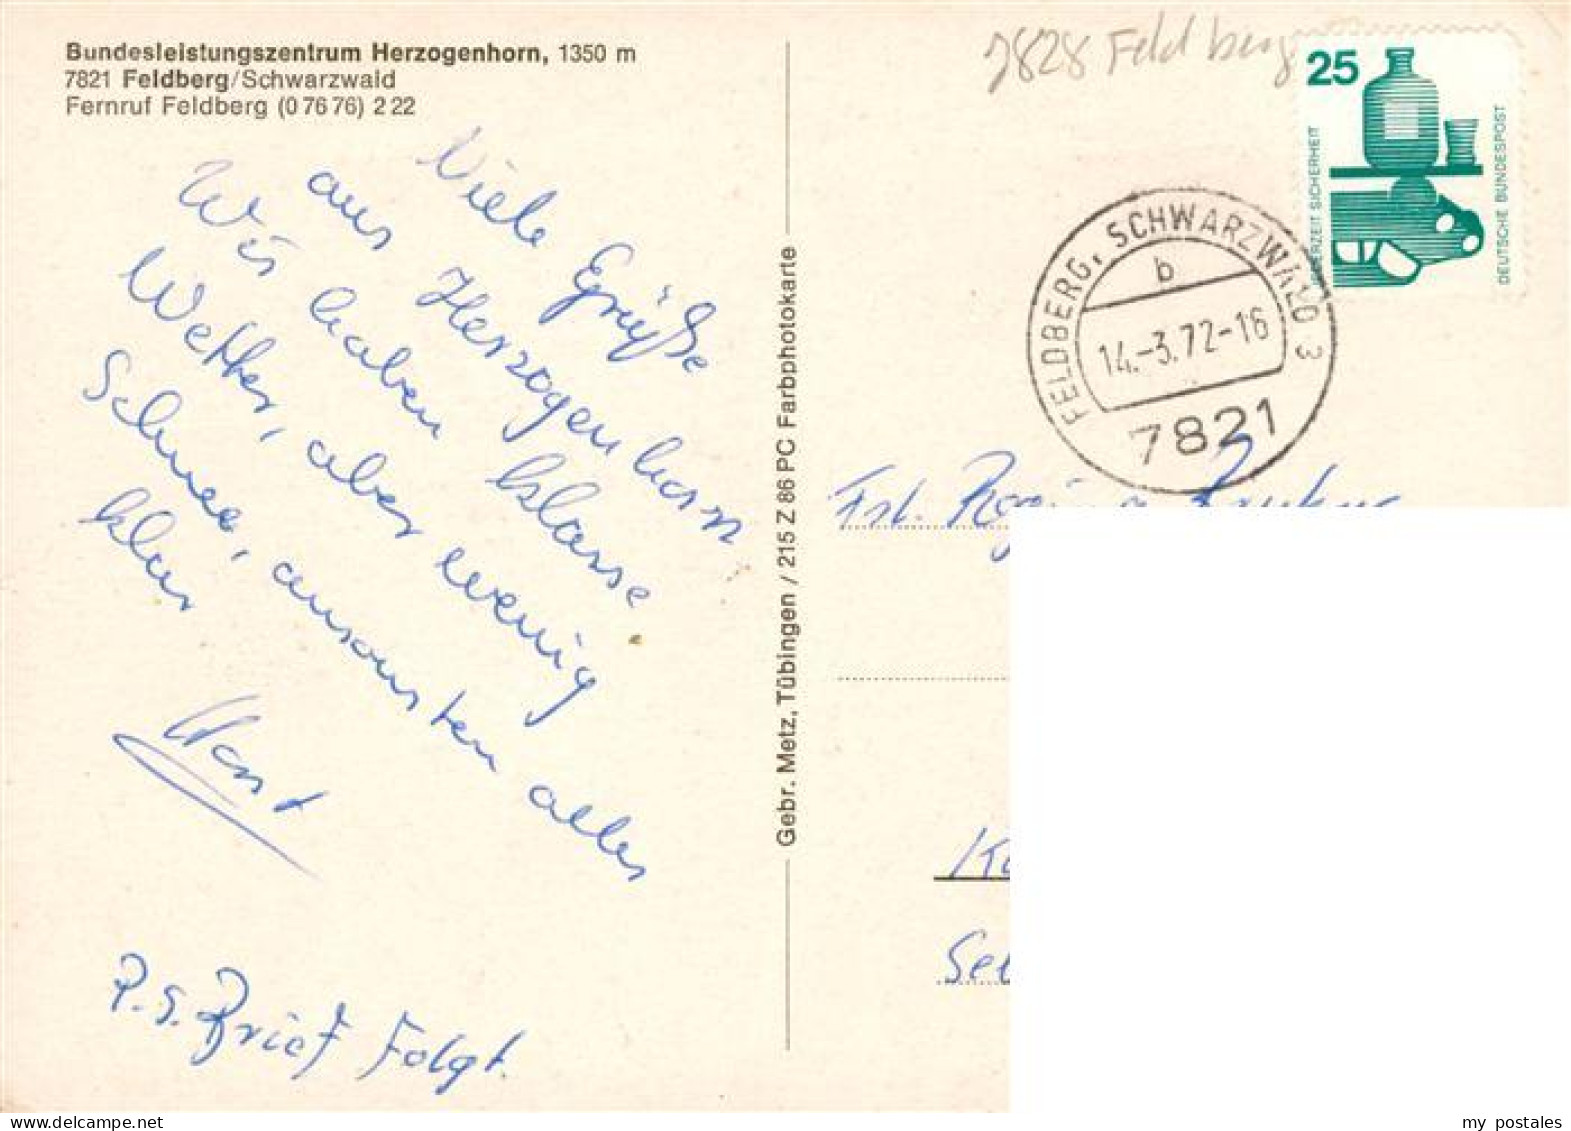 Bundesleistungszentrum Herzogenhorn, 1350 m
7821 Feldberg/Schwarzwald
Fernruf Feldberg (0 76 76) 2 22
Viele Grüße
aus Herzogenhorn
Wir haben klasse
Wetter, aber wenig
Schnee, ansonsten alles
klar
Horst
P.S. Brief Folgt.
Gebr. Metz, Tübingen / 215 Z 86 PC Farbphotokarte
7828 Feldberg
25
JEDERZEIT SICHERHEIT
DEUTSCHE BUNDESPOST
FELDBERG, SCHWARZWALD 3
b
14.-3.72-16
7821
Frl. Regina
my postales